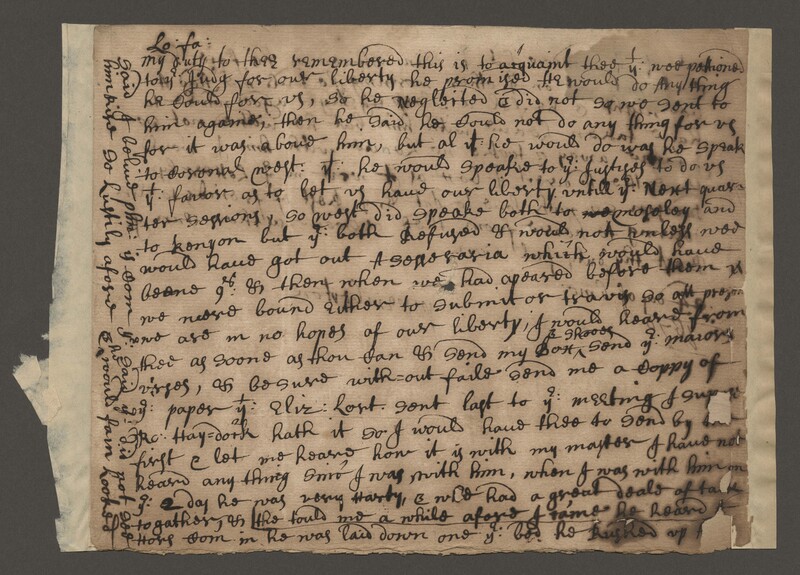 Lo: fa:
my duty to thee remembered this is to acquaint thee yt wee petioned
to ye Judg for our liberty he promised He would do Any thing
he Could for vs, so he neglected & did not so we sent to
him againe, then he said he Could not do any thing for vs
for it was aboue him, but al yt he would do was he speak
to Coronal west: yt: he would speake to ye: Justises to do vs
yt: favor as to let vs haue our liberty vntill ye: Next quar
ter sessions, so west did speake both to moseley and
to kenyon but ye: both Refused & would not unless wee
would haue got out A which would haue
beene & then when we had apeared before them
we were bound Either to submit or travis so att presen
we are in no hopes of our liberty, I would heare from
thee as soone as thou Can & send my Box & shooes send ye: maiors
verses, & be sure with-out faile send me a Coppy of
ye: paper yt: Eliz: Lort. sent last to ye: meeting I
Ro: Haydock hath it so I would haue thee to send by
first & let me heare how it is with my master I haue not
heard any thing sinc I was with him, when I was with him on
ye: 2 day he was very Harty, & wee had a great deale of talk
togather, & he tould me a while afore I came he heard
Hors Com in he was laid down one ye: bed he Rushed vp
said I beliue Com ye said yt: did not
him Rise so Lustily afore & he would fain Looked